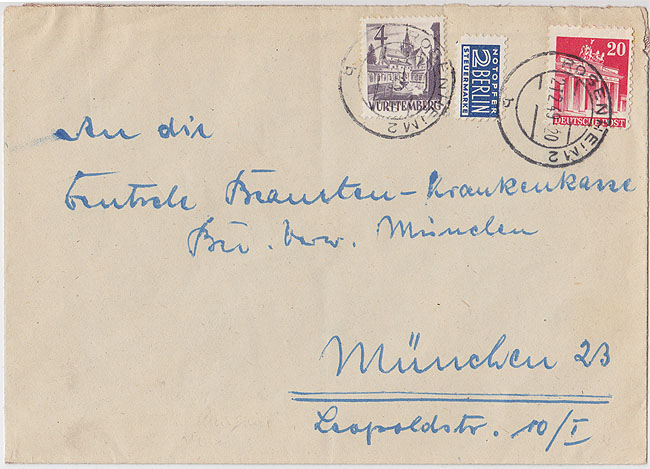 4
WÜRTTEMBERG
NOTOPFER
2 BERLIN
STEUERMARKE
20
DEUTSCHE POST
ROSENHEIM 2
b
ROSENHEIM 2
b
An die
Zentrale Beamten-Krankenkasse
Bez. Verw. München
München 23
Leopoldstr. 10/I